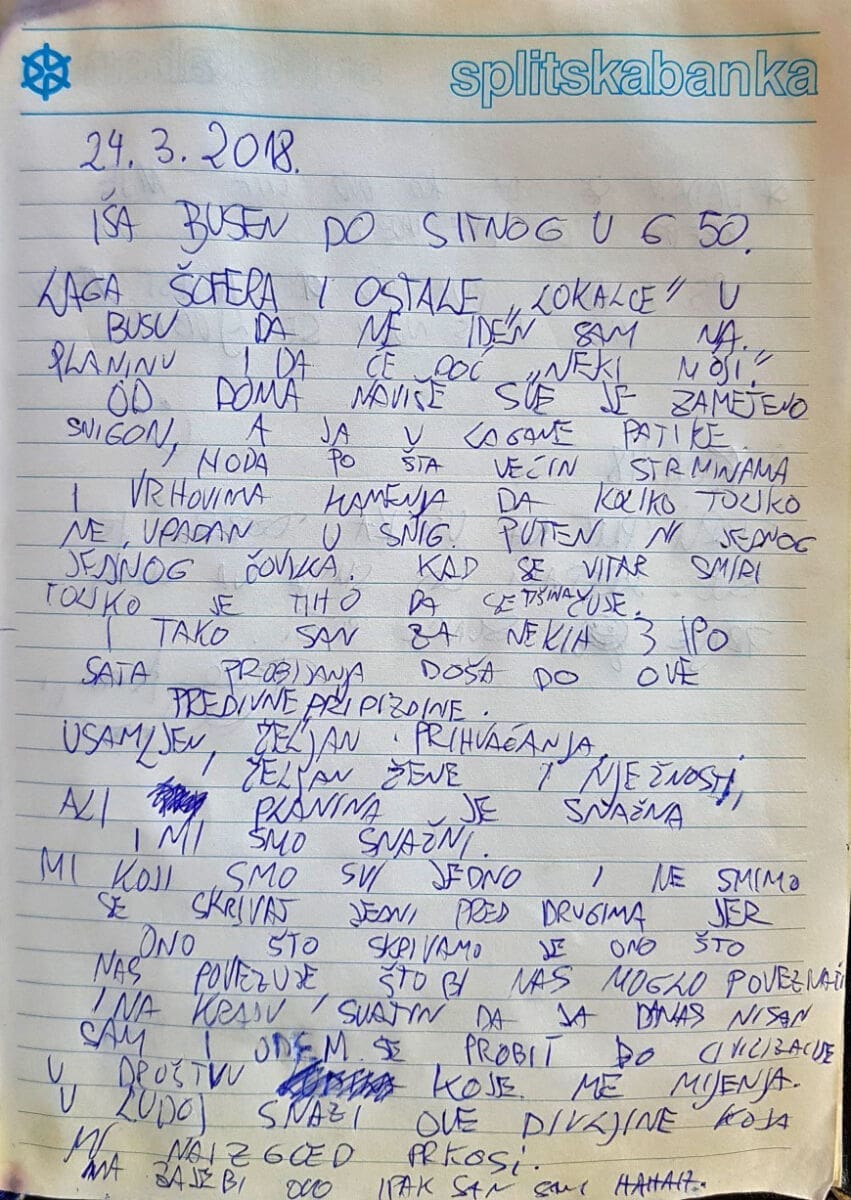 splitskabanka
24. 3. 2018.
IŠA BUSEN DO SITNOG U 6 50.
LAGA ŠOFERA I OSTALE „LOKALCE" U
BUSU DA NE IDEN SAM NA
PLANINU I DA ĆE DOĆ „NEKI MOJI."
OD DOMA NAVIŠE SVE JE ZAMETENO
SNIGON, A JA U LAGANE PATIKE
, HODA PO ŠTA VEĆIN STRMINAMA
I VRHOVIMA KAMENJA DA KOLIKO TOLIKO
NE UPADAN U SNIG. PUTEN NI JEDNOG
JEDINOG ČOVIKA. KAD SE VITAR SMIRI
TOLIKO JE TIHO DA SE TIŠINA ČUJE.
I TAKO SAN ZA NEKIH 3 IPO
SATA PROBIJANJA DOŠA DO OVE
PREDIVNE PRIPIZDINE.
USAMLJEN, ŽELJAN PRIHVAĆANJA,
, ŽELJAN ŽENE I NJEŽNOSTI,
ALI PLANINA JE SNAŽNA
I MI SMO SNAŽNI.
MI KOJI SMO SVI JEDNO I NE SMIMO
SE SKRIVAT JEDNI PRED DRUGIMA JER
ONO ŠTO SKRIVAMO JE ONO ŠTO
NAS POVEZUJE ŠTO BI NAS MOGLO POVEZIVATI
I NA KRAJU SVATIN DA JA DANAS NISAN
SAM I ODEM SE PROBIT DO CIVILIZACIJE
U DRUŠTVU KOJE ME MIJENJA.
U LUDOJ SNAZI OVE DIVLJINE KOJA
MI NAIZGLED PRKOSI.
MA ZAJEBI OVO IPAK SAN SAM HAHAH.